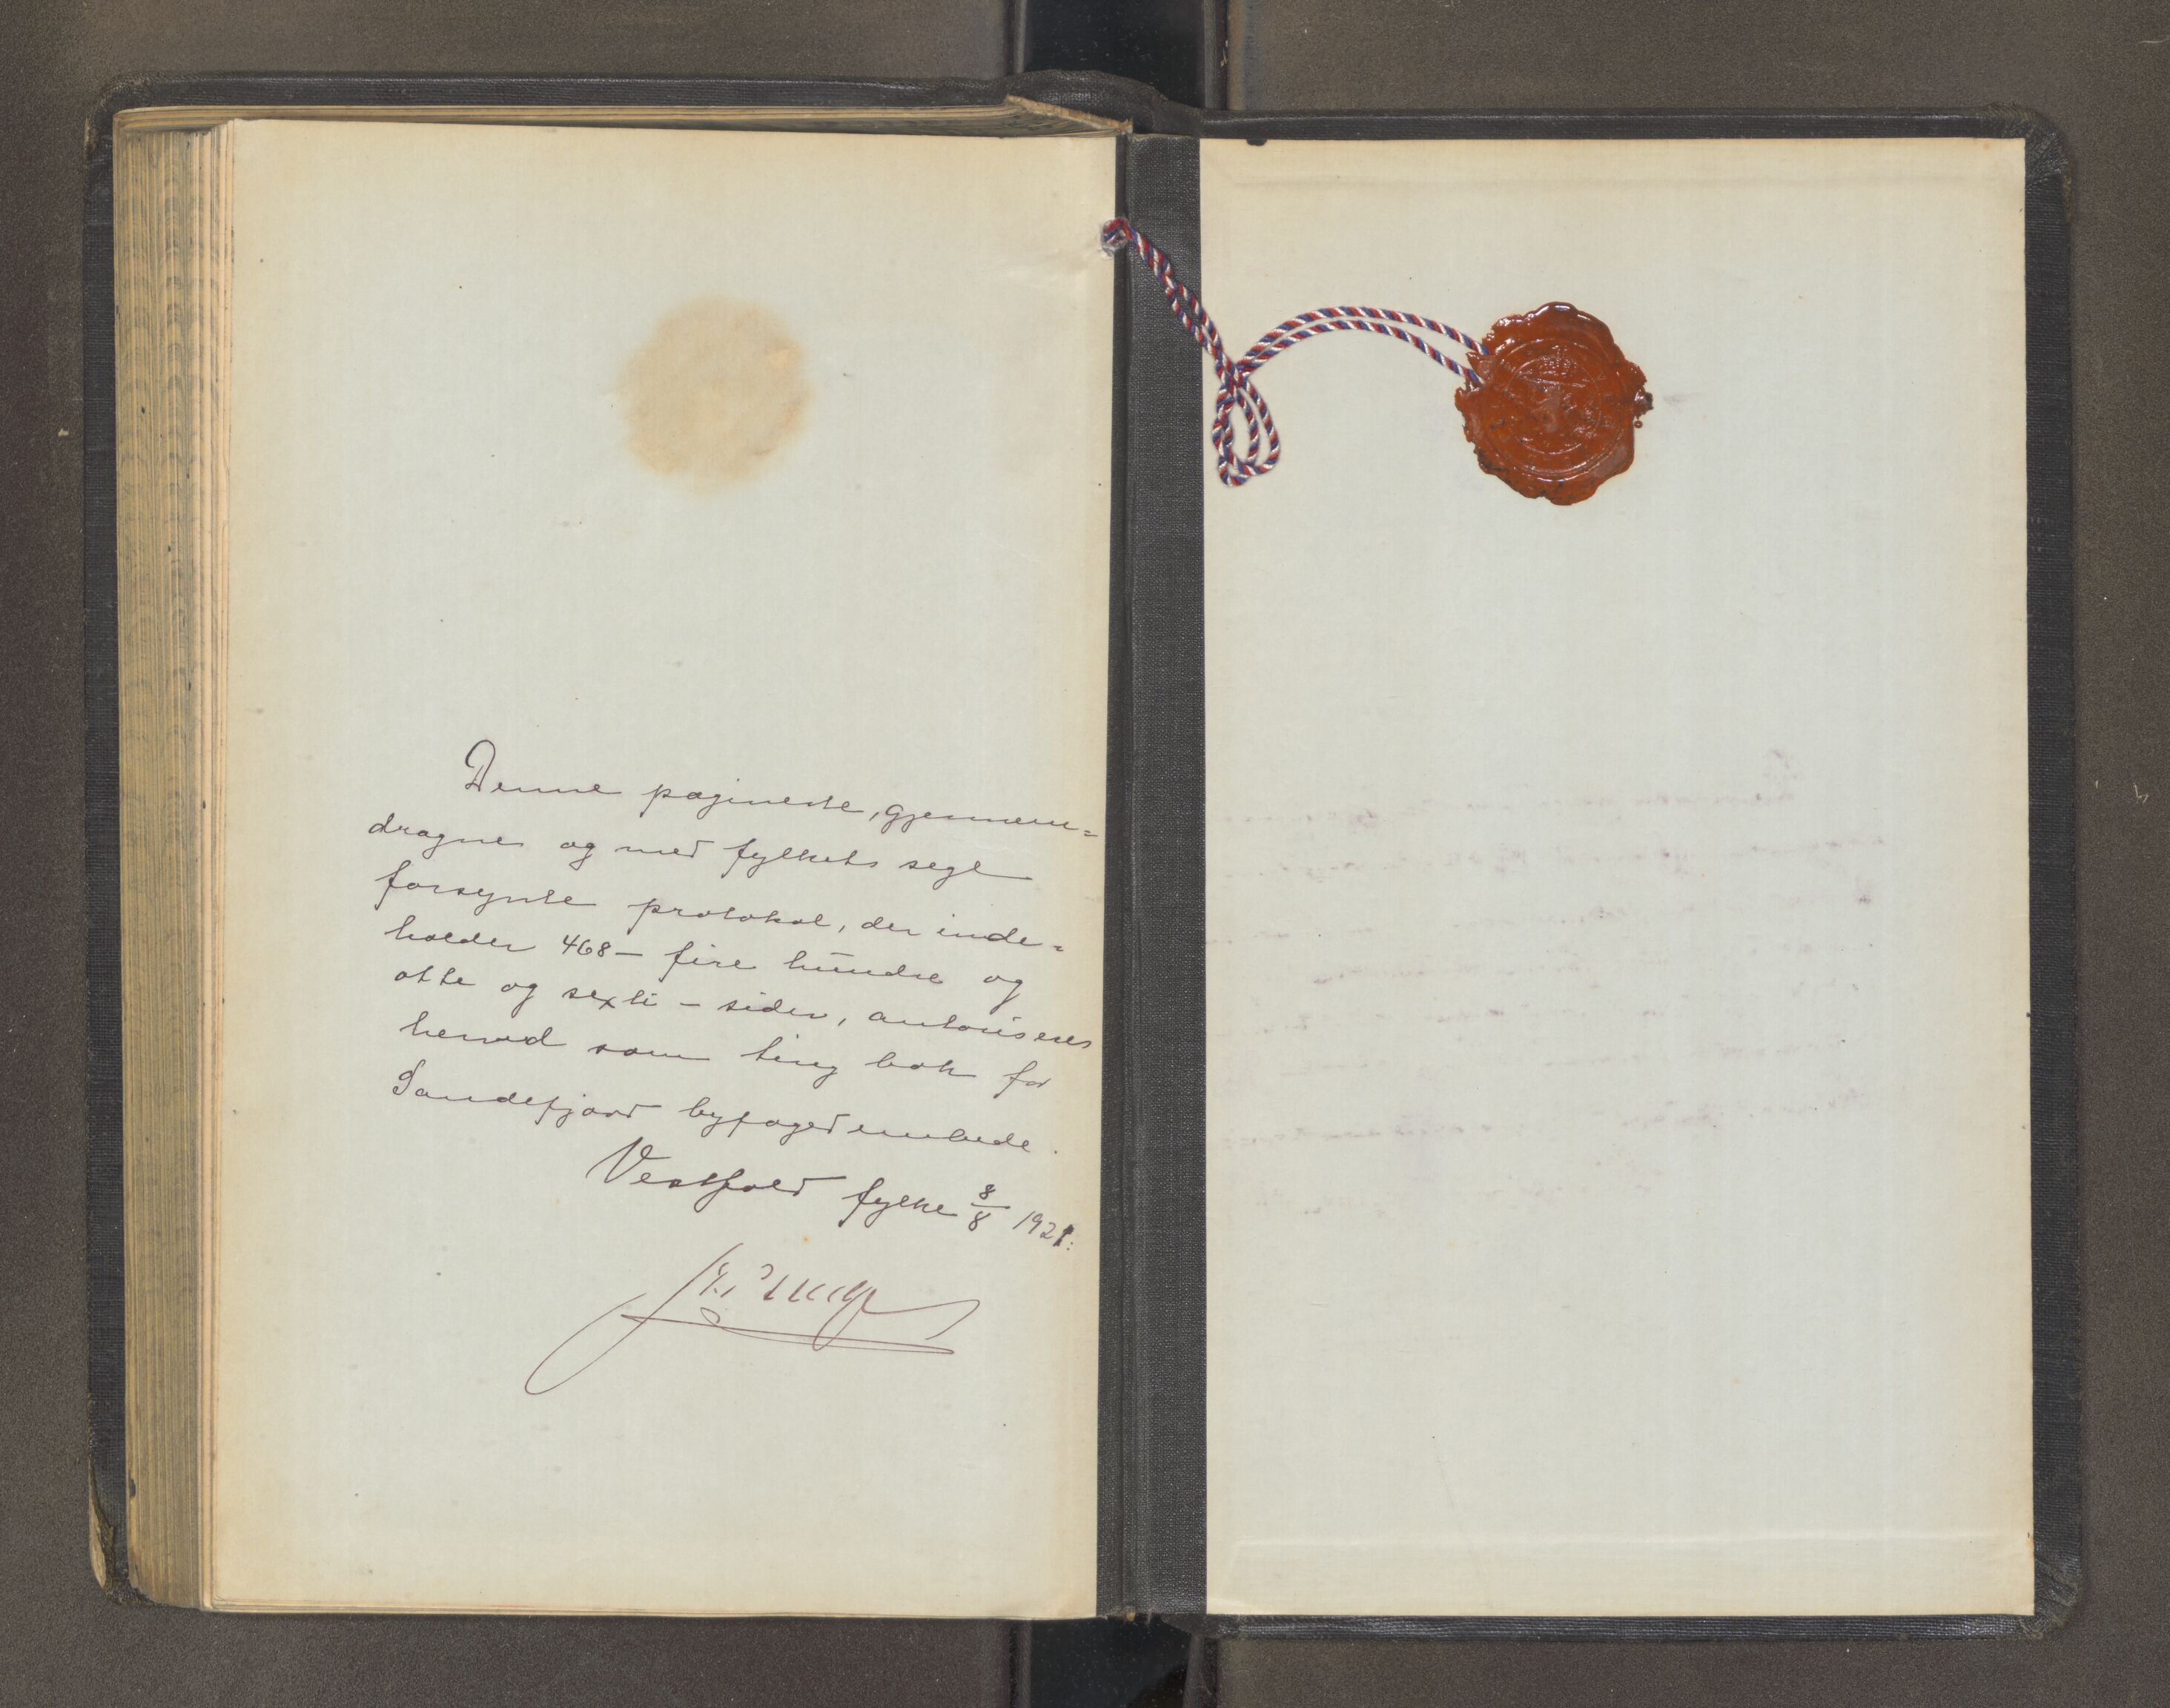 Denne paginerte, gjennem=
dragne og med fylkets segl
forsynte protokol, der inde=
holder 468 - fire hundre og
otte og sexti - sider, autoriseres
herved som ting bok for
Sandefjord byfogedembede.
Vestfold fylke 8/8 1921.